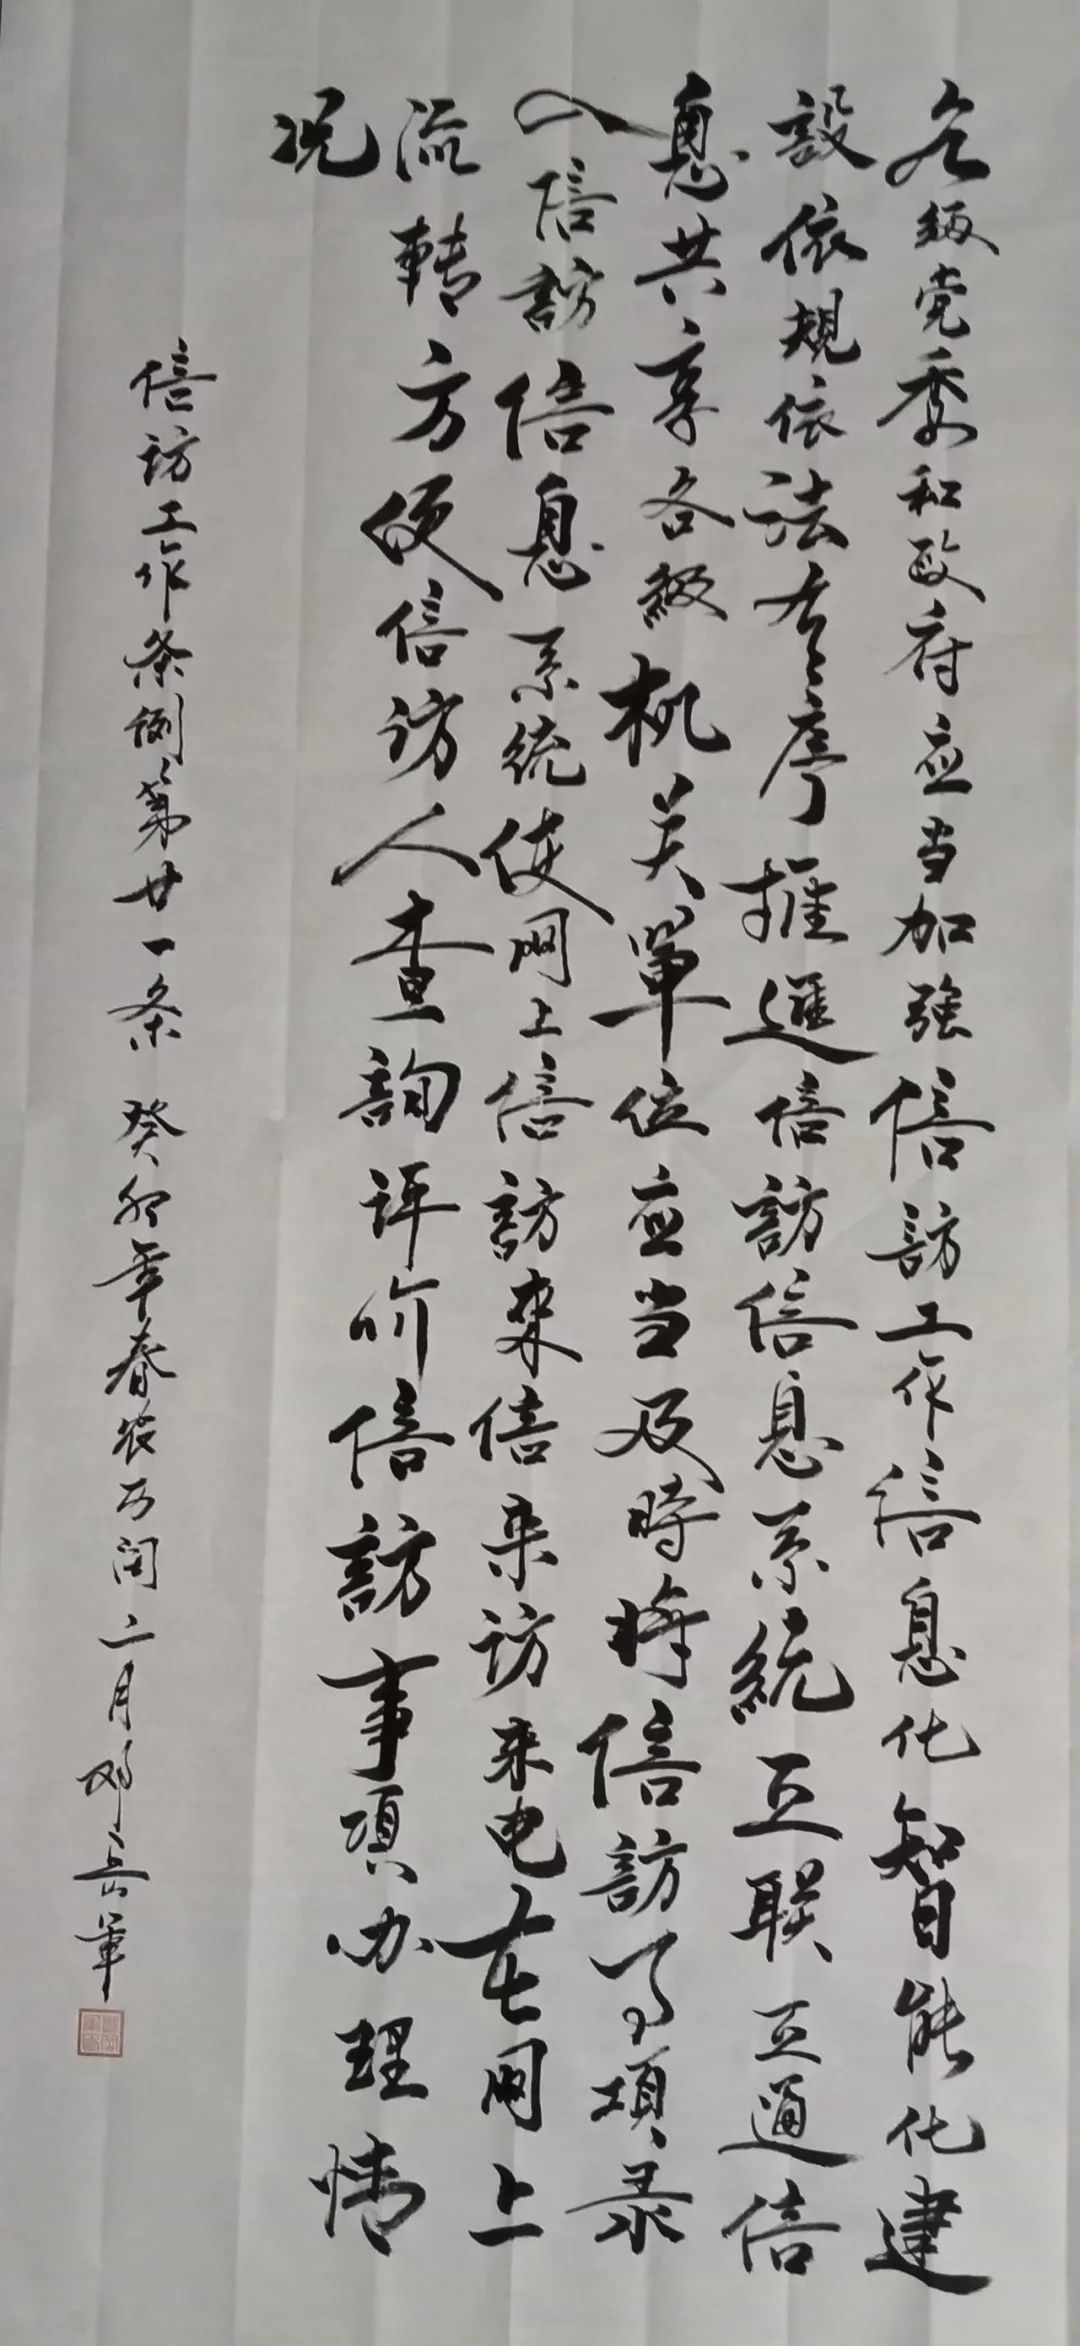 各级党委和政府应当加强信訪工作信息化智能化建
設依規依法有序推進信訪信息系統互联互通信
息共享各級机关單位应当及時将信訪事項录
入信訪信息系統使网上信訪来信来访来电在网上
流轉方便信访人查詢评价信訪事項办理情
况
信访工作条例第廿一条 癸卯年春农历闰二月邓岳军